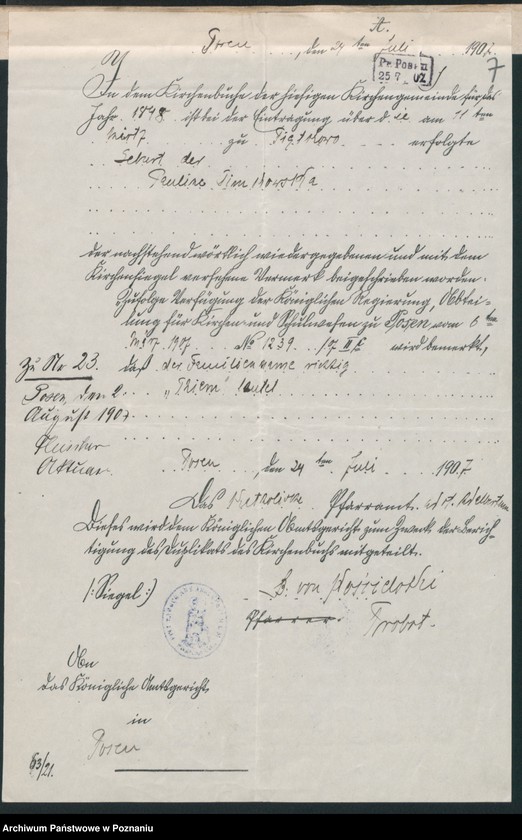 A.
Posen, den 24ten Juli 1907.
Pr. Posen
25.7.07
7
In dem Kirchenbuche der hiesigen Kirchengemeinde für das
Jahr 1848 ist bei der Eintragung über die am 11ten
März zu erfolgte
Geburt der
Pauline
der nachstehend wörtlich wiedergegebene und mit dem
Kirchensiegel versehene Vermerk beigeschrieben worden:
Zufolge Verfügung der Königlichen Regierung, Abtei-
lung für Kirchen- und Schulwesen zu Posen vom 6ten
März 1907 No 1239/07 II wird bemerkt,
Zu Nr. 23. daß der Familienname richtig
Posen, den 2. "Thiem" lautet
August 1907
Aktuar
Posen, den 24ten Juli 1907
Das Katholische Pfarramt
Dieses wird dem Königlichen Amtsgericht zum Zweck der Berich-
tigung des Duplikats des Kirchenbuchs mitgeteilt.
(:Siegel:)
von
Pfarrer. Probst.
An
das Königliche Amtsgericht
in
Posen
Archiwum Państwowe w Poznaniu